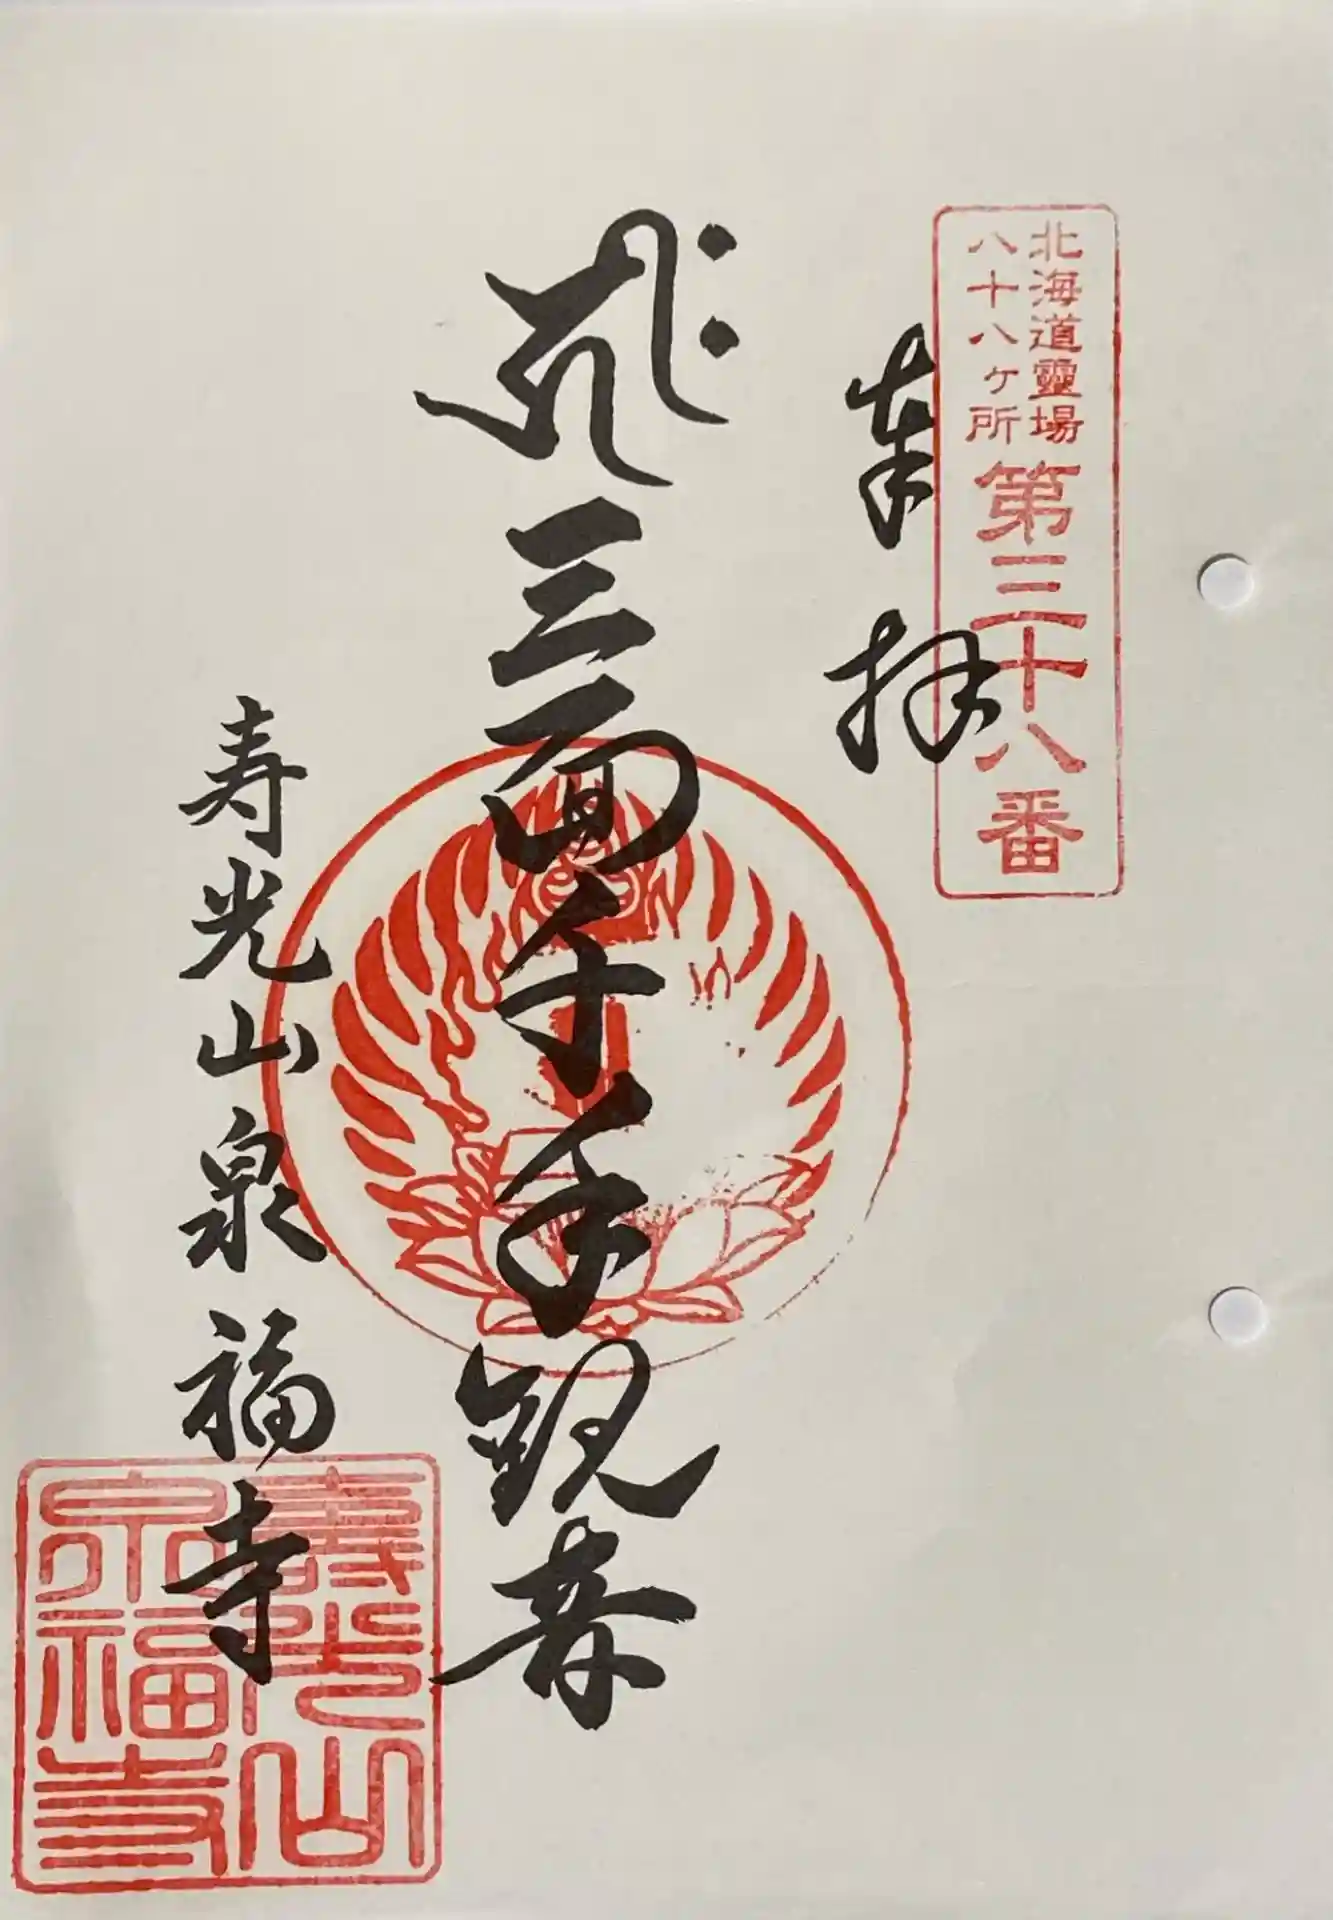 北海道靈場
八十八ヶ所
第三十八番
奉拝
𑖮𑖿𑖨𑖱𑖾 三面千手観音
寿光山泉福寺
壽光山
泉福寺